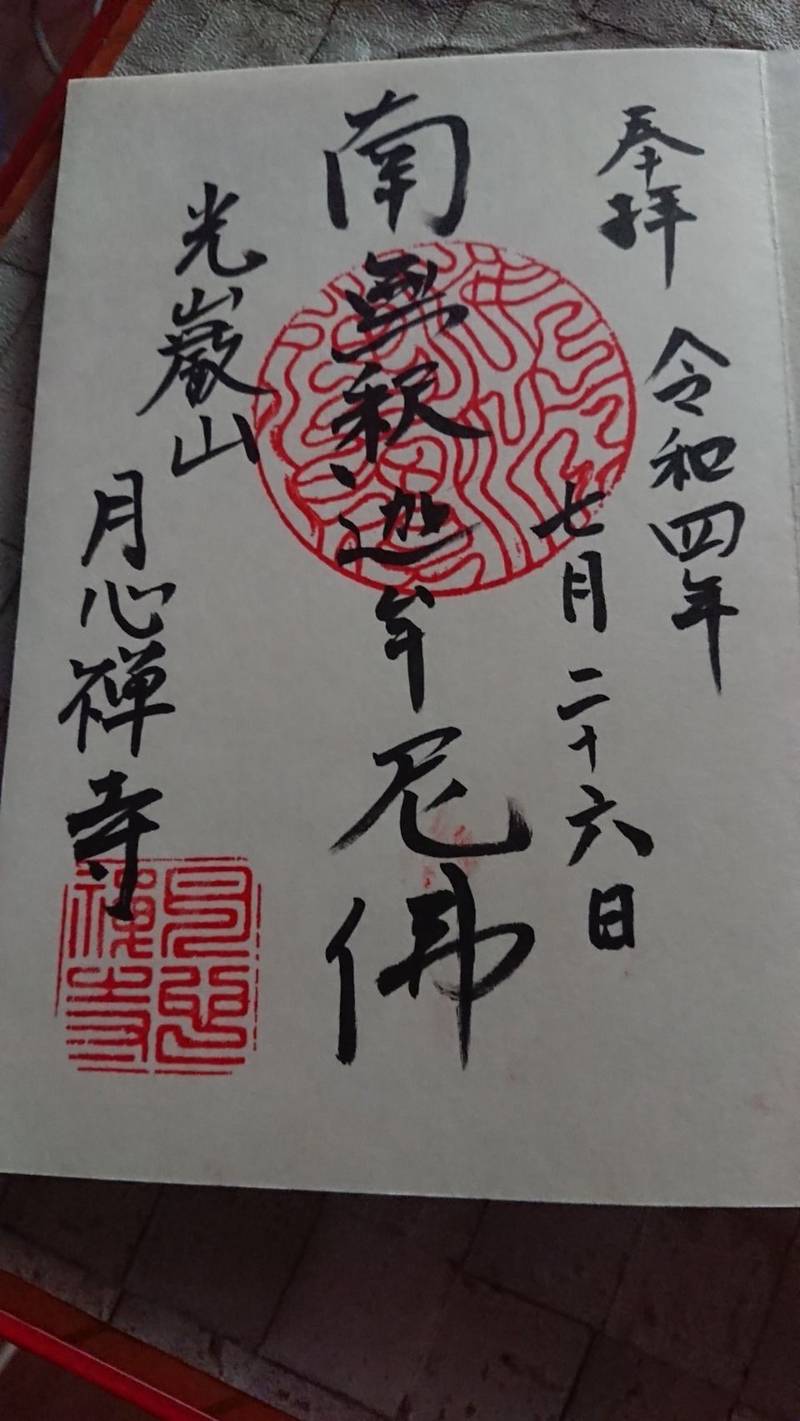 奉拝
令和四年
七月二十六日
南無釈迦牟尼佛
光巖山
月心禅寺
月心
禅寺